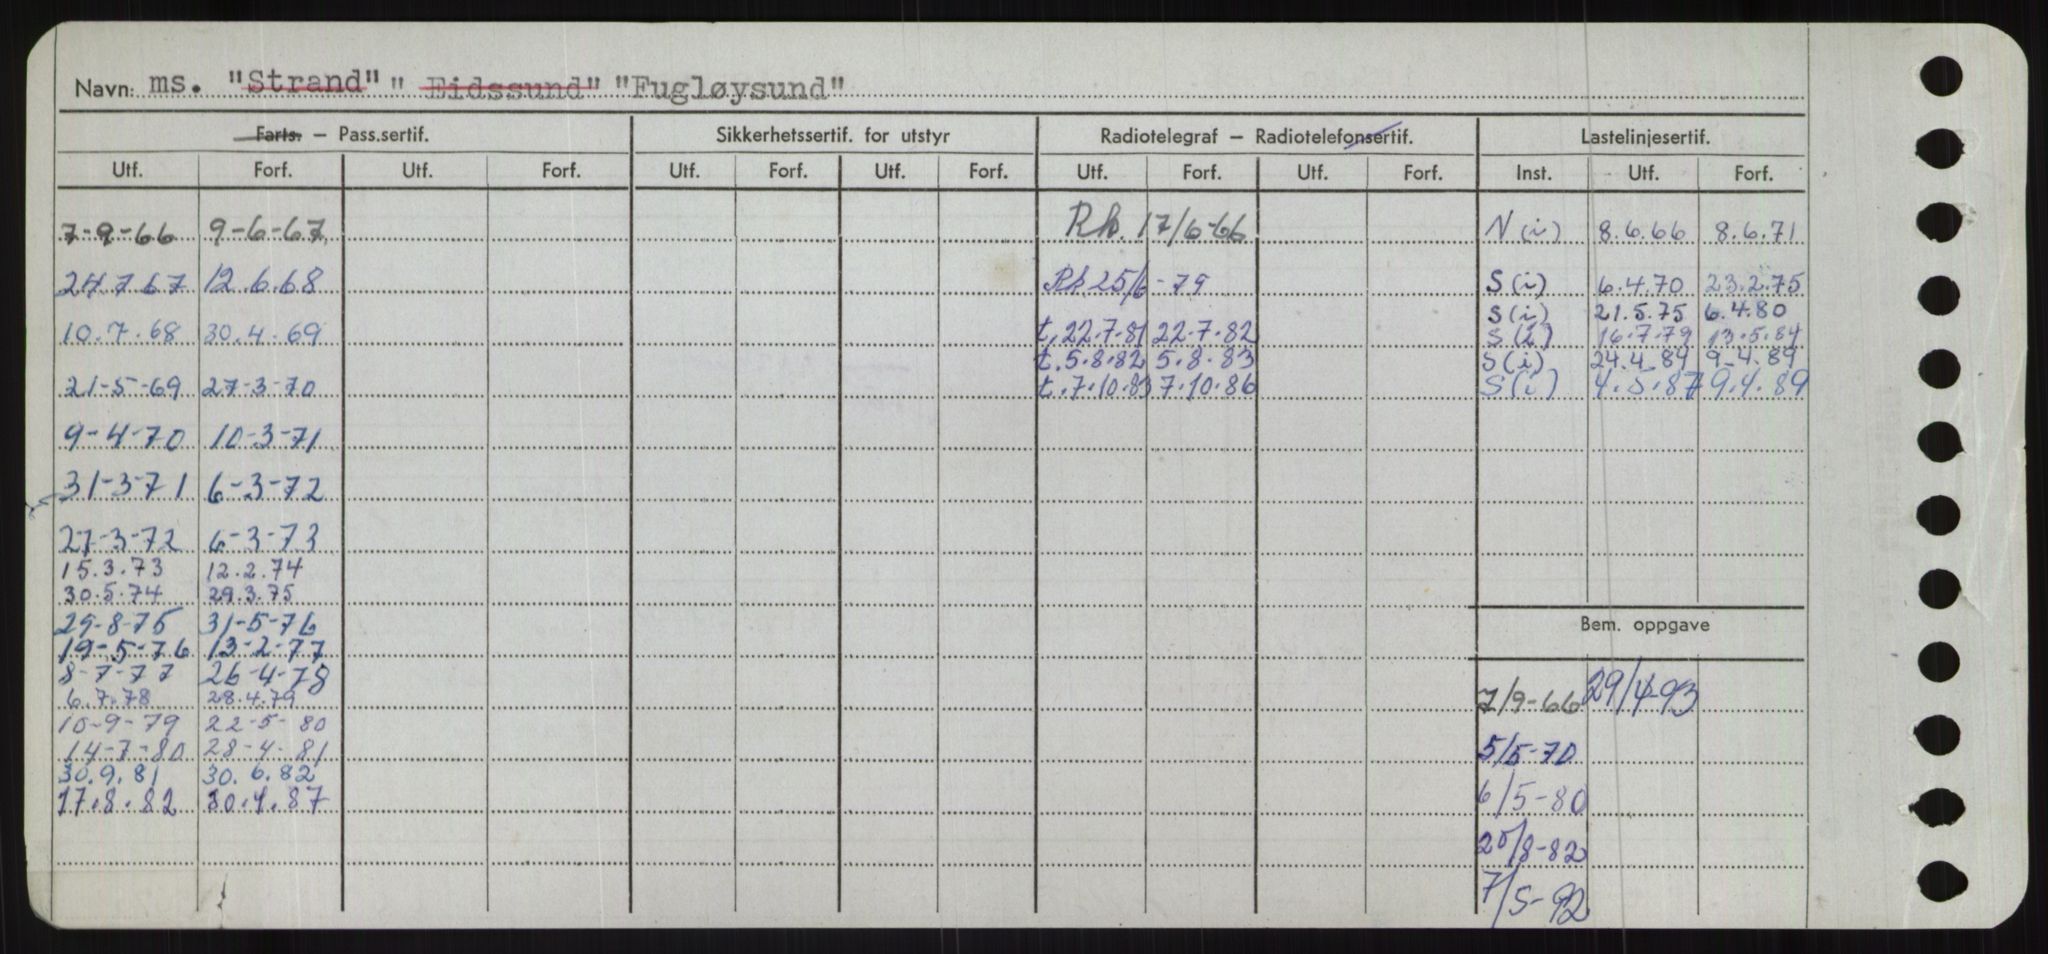 Navn: ms. "Strand" " Eidssund" "Fugløysund"
Farts. — Pass.sertif. Sikkerhetssertif. for utstyr Radiotelegraf — Radiotelefonsertif. Lastelinjesertif.
Utf. Forf. Utf. Forf. Utf. Forf. Utf. Forf. Utf. Forf. Utf. Forf. Inst. Utf. Forf.
7-9-66 9-6-67 Rk. 17/6-66 N(i) 8.6.66 8.6.71
24.7.67 12.6.68 Rk 25/6-79 S(i) 6.4.70 23.2.75
S(i) 21.5.75 6.4.80
10.7.68 30.4.69 t. 22.7.81 22.7.82 S(i) 16.7.79 13.5.84
t. 5.8.82 5.8.83 S(i) 24.4.84 9-4.89
21-5-69 27-3-70 t. 7.10.83 7.10.86 S(i) 4.5.87 9.4.89
9-4-70 10-3-71
31-3-71 6-3-72
27-3-72 6-3-73
15.3.73 12.2.74
30.5.74 29.3.75
29-8-75 31-5-76
Bem. oppgave
19-5-76 13-2-77
8-7-77 26-4-78
6.7.78 28.4.79 7/9-66 29/4-93
10-9-79 22-5-80
14-7-80 28-4-81 5/5-70
30.9.81 30.6.82
17.8.82 30.4.87 6/5-80
20/8-82
7/5-92